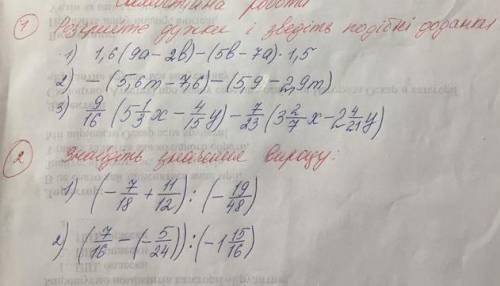 Самостійна робота
1 Розкрийте дужки і зведіть подібні доданки
1) 1,6(9a-2b)-(5b-7a)·1,5
2) -(5,6m-7,6)-(5,9-2,9m)
3) 9/16(5 1/3x-4/15y)-7/23(3 2/7x-2 4/21y)
2 Знайдіть значення виразу:
1) (-7/18+11/12):(-19/48)
2) (7/16-(-5/24)):(-1 15/16)